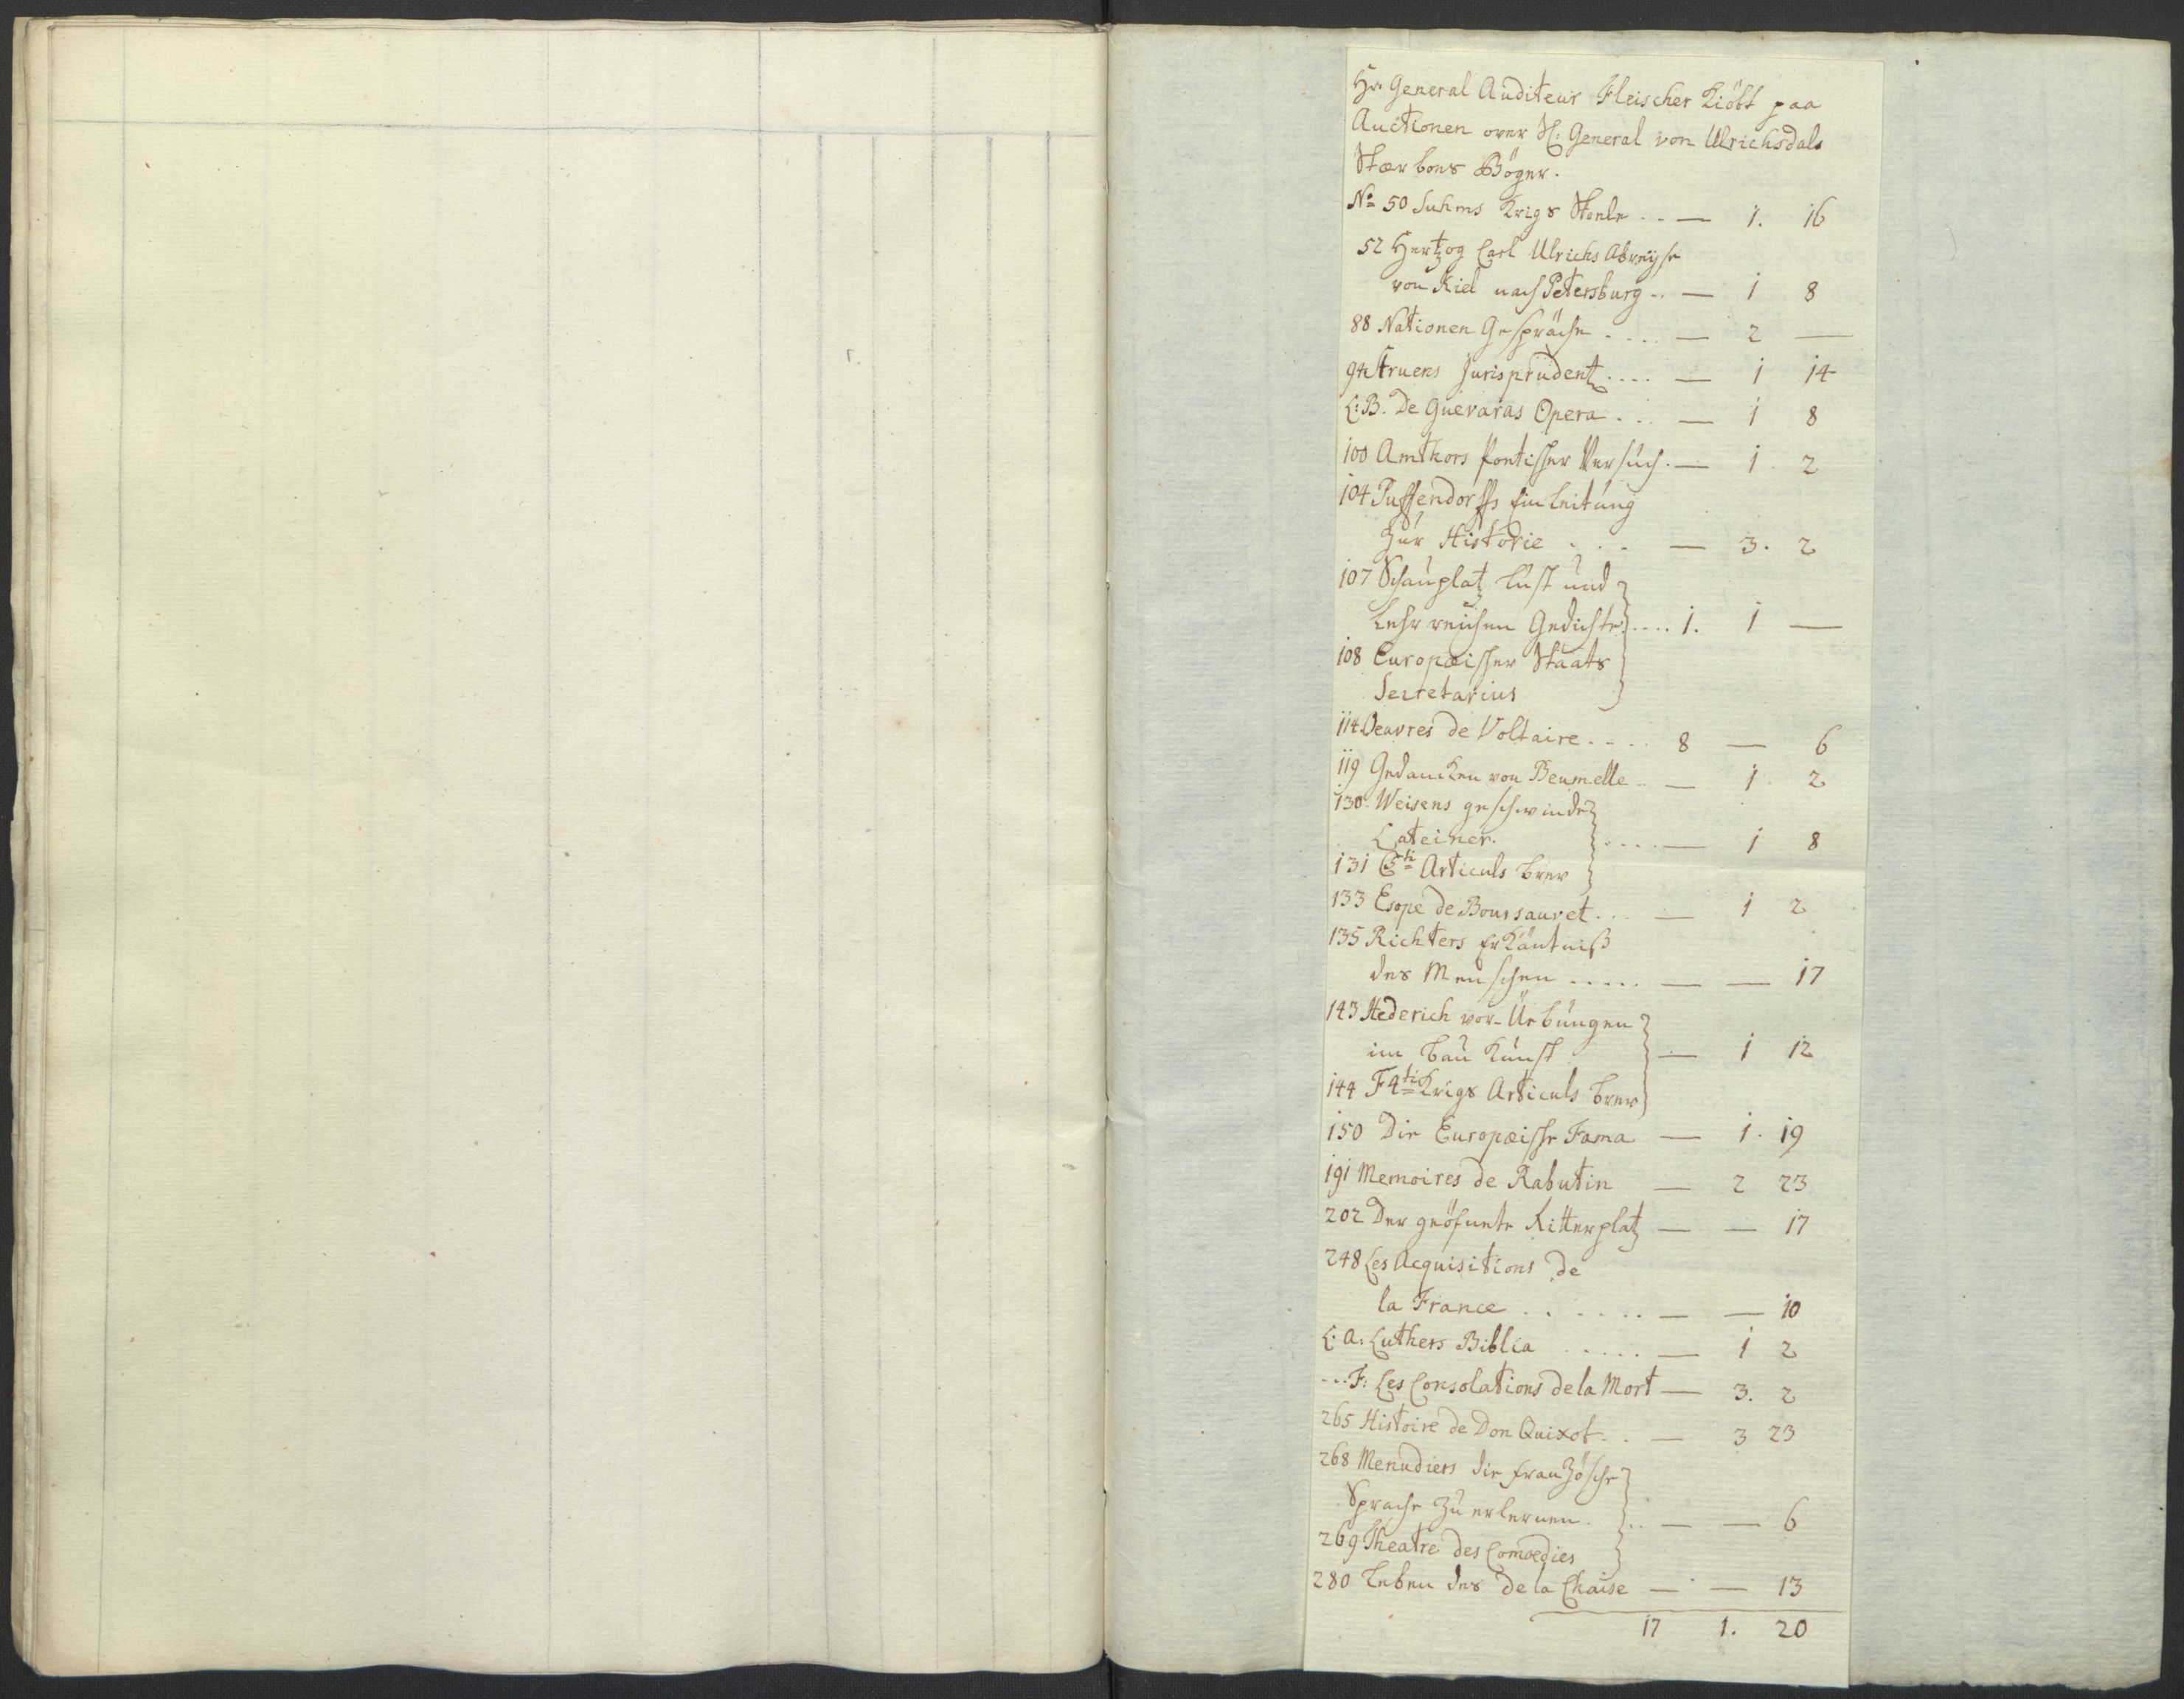 Hr. General Auditeur Fleischer Kiöbt paa
Auctionen over Sl: General von Ulrichsdals
Stærboes Böger.
No 50 Suhms Krigs Skole .. — 1. 16
52 Hertzog Carl Ulrichs Abreÿse
von Kiel nach Petersburg .. — 1 8
88 Nationen Gespräche .... — 2 —
94 Struens Jurisprudentz .... — 1 14
L: B. De Guevaras Opera ... — 1 8
100 Amthors Poetischer Versuch . — 1 2
104 Puffendorffs Einleitung
Zur Historie ... — 3. 2
107 Schauplatz lust und
Lehrreichen Gedichte .... 1. 1 —
108 Europæischer Staats
Secretarius
114 Oeuvres de Voltaire .... 8 — 6
119 Gedancken von Beumelle .. — 1 2
130 Weisens geschwinde
Lateiner. .... — 1 8
131 C 5ti Articuls brev
133 Esope de Boursauret ... — 1 2
135 Richters Erkäntniß
des Menschen ..... — — 17
143 Hederich vor-Ürbungen
im bau Kunst — 1 12
144 F 4ti Krigs Articuls brev
150 Die Europæische Fama — 1. 19
191 Memoires de Rabutin — 2 23
202 Der geöfnete Ritterplatz — — 17
248 Les Acquisitions de
la France ...... — — 10
L: A: Luthers Biblia ..... — 1 2
... F: Les Consolations de la Mort — 3. 2
265 Histoire de Don Quixot .. — 3 23
268 Menudiers die französche
Sprache Zu erlernen. .. — — 6
269 Theatre des Comoedies
280 Leben des de la Chaise — — 13
17 1. 20